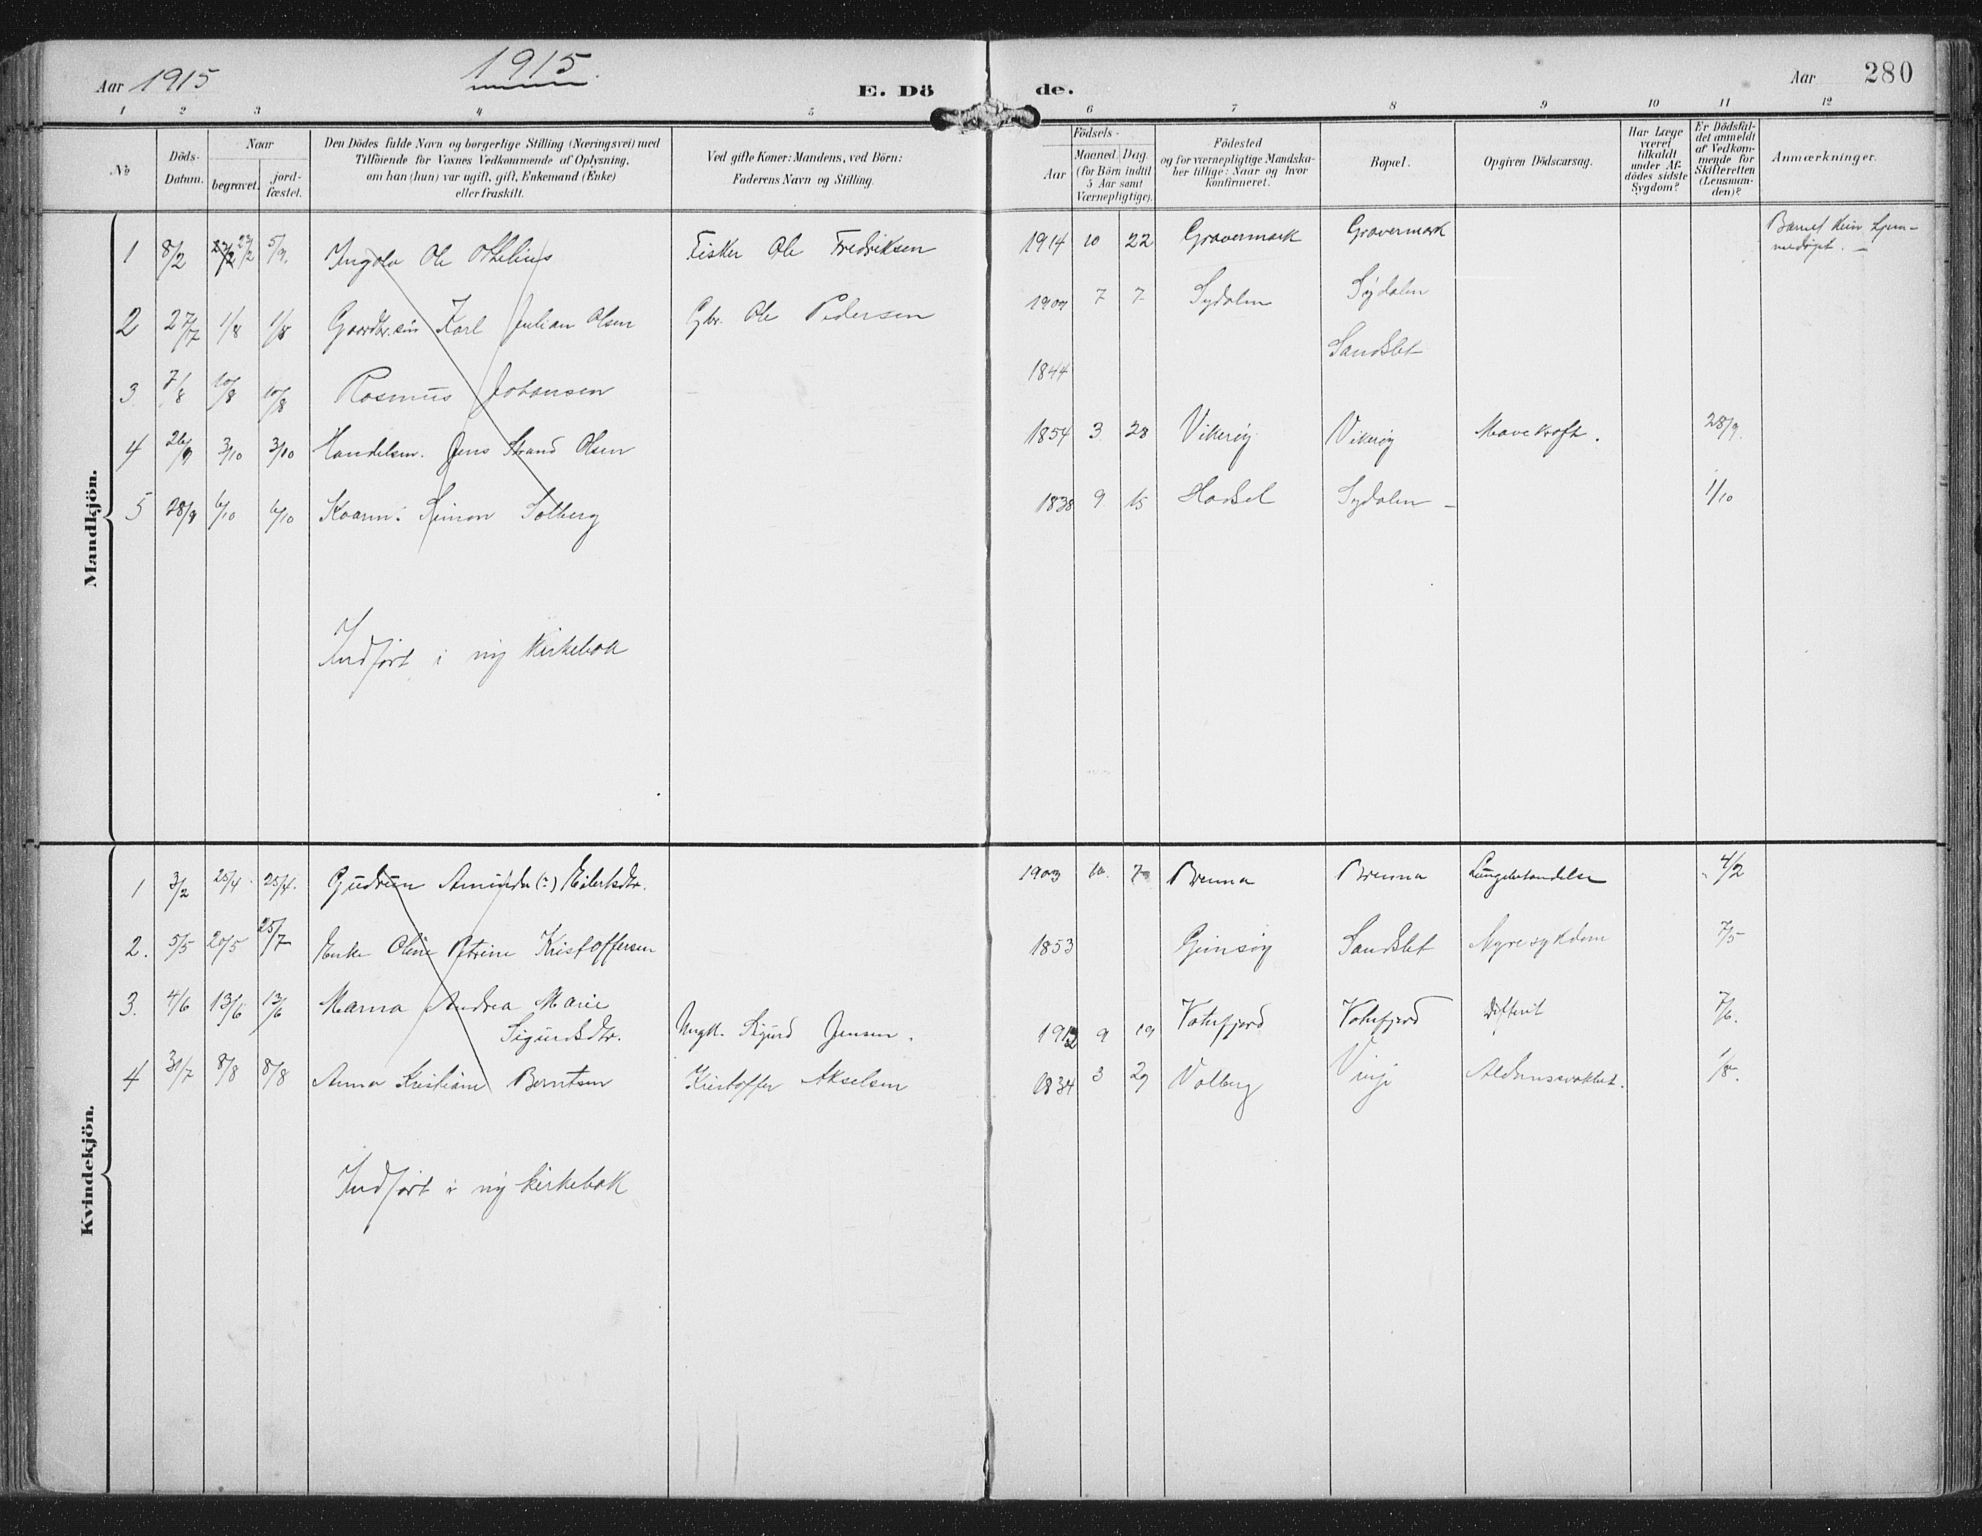 Aar 1915
1915.
E. Dö
de.
Aar
280
1 2 3 4 5 6 7 8 9 10 11 12
No
Döds-
Datum.
Naar
begravet.
jord-
fæstet.
Den Dödes fulde Navn og borgerlige Stilling (Næringsvei) med
Tilföiende for Voxnes Vedkommende af Oplysning,
om han (hun) var ugift, gift, Enkemand (Enke)
eller fraskilt.
Ved gifte Koner: Mandens, ved Börn:
Faderens Navn og Stilling.
Födsels-
Aar
Maaned. Dag.
(for Börn indtil
5 Aar samt
Værnepligtige).
Födested
og for værnepligtige Mandska-
ber tillige: Naar og hvor
konfirmeret.
Bopæl.
Opgiven Dödsaarsag.
Har Læge
været
tilkaldt
under Af-
dödes sidste
Sygdom?
Er Dödsfal-
det anmeldt
af Vedkom-
mende for
Skifteretten
(Lensman-
den)?
Anmærkninger.
Mandkjön.
1 8/2 23/2 5/9. Ingolv Ole Othelius Fisker Ole Fredriksen 1914 10 22 Gravermark Gravermark Barnet kun hjem-
medøpt. —
2 27/7 1/8 1/8 Gaardbr.sön Karl Julian Olsen Gbr. Ole Pedersen 1907 7 7 Sydalen Sydalen
3 7/8 10/8 10/8 Rasmus Johansen 1844 Sandslet
4 26/9 3/10 3/10 Handelsm. Jens Strand Olsen 1854 3 28 Vikerøy Vikerøy Mavekræft. 28/9.
5 28/9 6/10 6/10 Kaarm. Simon Solberg 1838 9 15 Hadsel Sydalen – 1/10
Indført i ny kirkebok
Kvindekjön.
1 3/2 25/4. 25/4. Gudrun (?) Eilertsdtr. 1903 10. 7 Brenna Brenna 4/2
2. 5/5 20/5 25/7 Enke Oline Petrine Kristoffersen 1853 Gimsøy Sandslet Nyresykdom 7/5
3. 4/6 13/6 13/6 Marna Andrea Marie
Sigurdsdtr. Ungk. Sigurd Jensen. 1912 9 19 Vatnfjord Vatnfjord Difterit 7/6.
4 31/7 8/8 8/8 Anna Kristiane Berntsen Kristoffer Akselsen 1834 3 29 Valberg Vinje Alderssvakhet. 1/8.
Indført i ny kirkebok